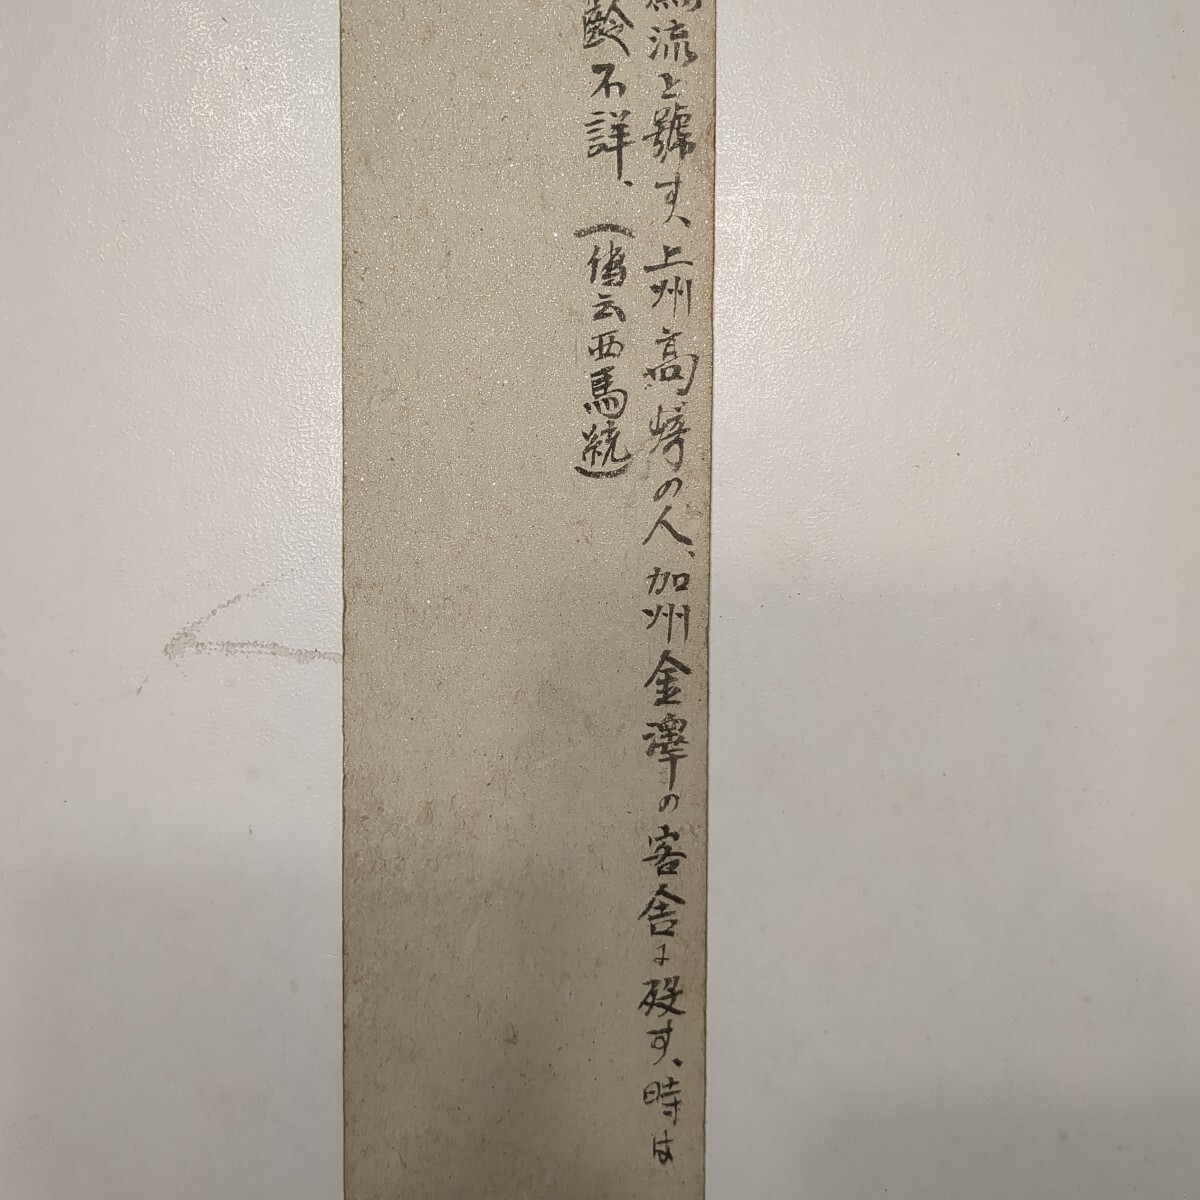 流と號す、上州高崎の人、加州金澤の客舎に歿す、時は
齢不詳、(傳云西馬統)